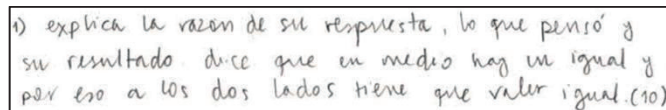 1) explica la razón de su respuesta, lo que pensó y
su resultado dice que en medio hay un igual y
por eso a los dos lados tiene que valer igual.(10)